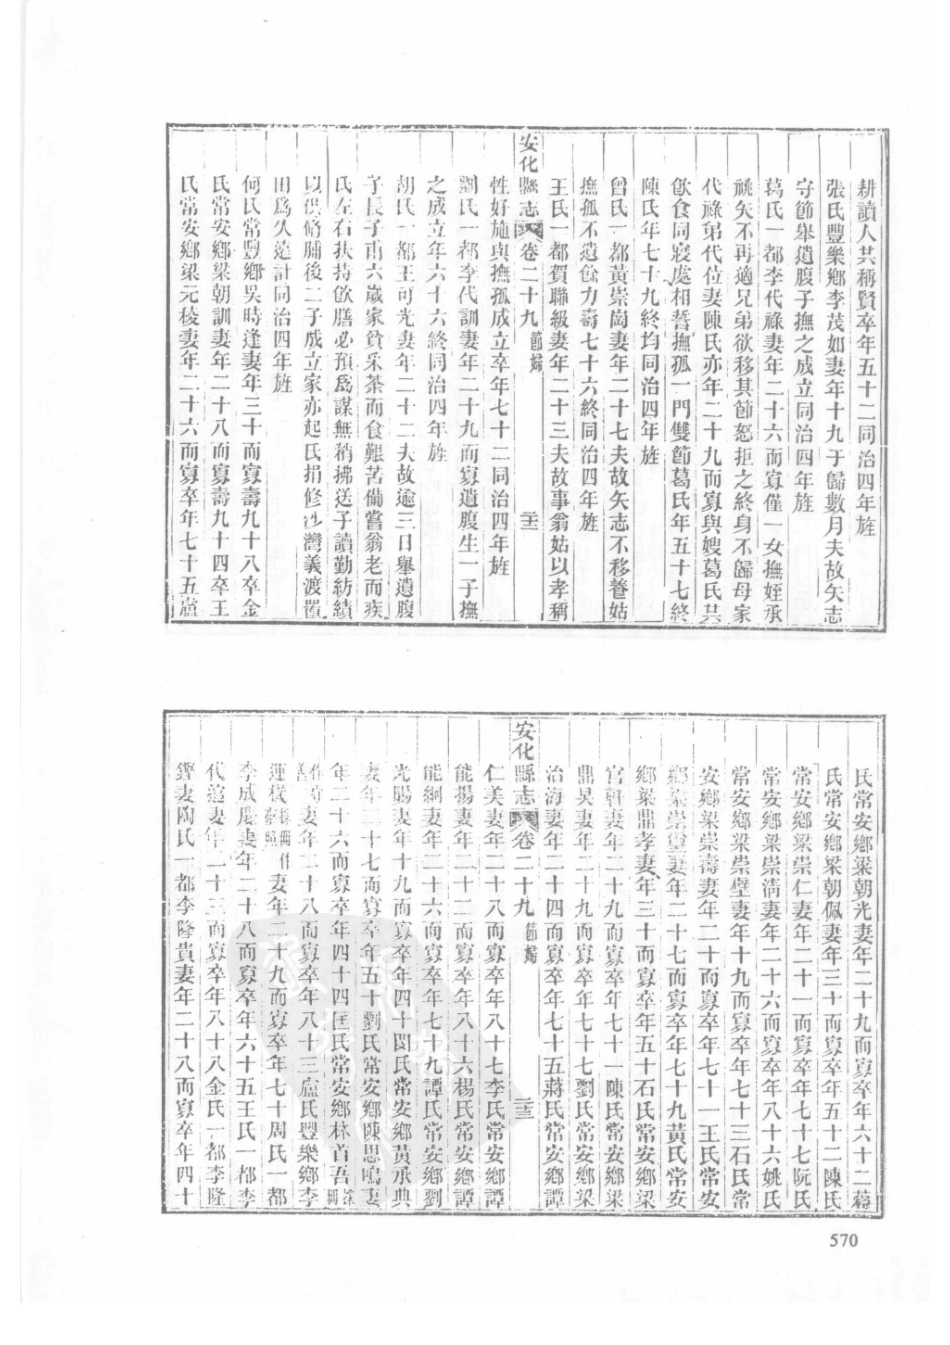 耕讀人共稱賢卒年五十二同治四年旌
張氏豐樂鄉李茂如妻年十九于歸數月夫故矢志
守節舉遺腹子撫之成立同治四年旌
葛氏一都李代祿妻年二十六而寡僅一女撫姪承
祧矢不再適兄弟欲移其節怒拒之終身不歸母家
代祿弟代位妻陳氏亦年二十九而寡與嫂葛氏共
飲食同寢處相誓撫孤一門雙節葛氏年五十七終
陳氏年七十九終均同治四年旌
曾氏一都黃崇崗妻年二十七夫故矢志不移養姑
撫孤不遺餘力壽七十六終同治四年旌
王氏一都賀聯級妻年二十三夫故事翁姑以孝稱
安化縣志 卷二十九 節婦 二十二
性好施與撫孤成立卒年七十二同治四年旌
劉氏一都李代訓妻年二十九而寡遺腹生一子撫
之成立年六十六終同治四年旌
胡氏一都王可光妻年二十二夫故逾三日舉遺腹
子長子甫六歲家貧采茶而食艱苦備嘗翁老而疾
氏左右扶持飲膳必預爲謀無稍拂送子讀勤紡績
以供脩脯後二子成立家亦起氏捐修沙灣義渡置
田爲久遠計同治四年旌
何氏常豐鄉吳時逢妻年三十而寡壽九十八卒金
氏常安鄉梁朝訓妻年二十八而寡壽九十四卒王
氏常安鄉梁元稜妻年二十六而寡卒年七十五盧
氏常安鄉梁朝光妻年二十九而寡卒年六十二
氏常安鄉梁朝佩妻年三十而寡卒年五十二陳氏
常安鄉梁崇仁妻年二十一而寡卒年七十七阮氏
常安鄉梁崇清妻年二十六而寡卒年八十六姚氏
常安鄉梁崇壁妻年十九而寡卒年七十三石氏常
安鄉梁崇壽妻年二十而寡卒年七十一王氏常安
鄉梁崇妻年二十七而寡卒年七十九黃氏常安
鄉梁鼎孝妻年三十而寡卒年五十石氏常安鄉梁
官軒妻年二十九而寡卒年七十一陳氏常安鄉梁
鼎昊妻年二十九而寡卒年七十七劉氏常安鄉梁
治海妻年二十四而寡卒年七十五蔣氏常安鄉譚
安化縣志 卷二十九 節婦 二十三
仁美妻年二十八而寡卒年八十七李氏常安鄉譚
能揚妻年二十二而寡卒年八十六楊氏常安鄉譚
能綱妻年二十六而寡卒年七十九譚氏常安鄉劉
光賜妻年十九而寡卒年四十閔氏常安鄉黃承典
妻年二十七而寡卒年五十劉氏常安鄉陳思鳴妻
年二十六而寡卒年四十四匡氏常安鄉林首吾
妻年二十八而寡卒年八十三盧氏豐樂鄉李
運樣妻年二十九而寡卒年七十周氏一都
李成慶妻年二十八而寡卒年六十五王氏一都李
代造妻年二十三而寡卒年八十八金氏一都李隆
鏗妻陶氏一都李隆貴妻年二十八而寡卒年四十
570